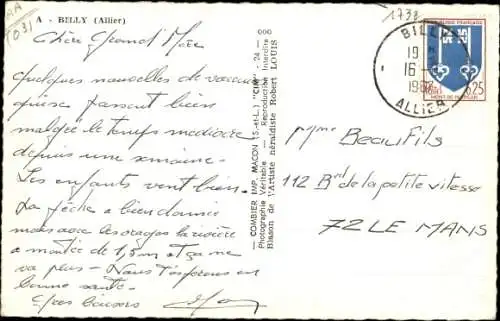 A - BILLY (Allier)
Chère Grand'Mère
Quelques nouvelles de vacances
qui se passent bien
malgré le temps médiocre
depuis une semaine.
Les enfants vont bien.
La pêche a bien donné
mais avec les orages la rivière
a montée de 1,5m et ça ne
va plus - Nous t'espérons en
bonne santé.
Gros baisers
000
— COMBIER IMP. MACON (S.-et-L.) "CIM" 24 —
Photographie Véritable - Reproduction Interdite
Blason de l'Artiste héraldiste Robert LOUIS
1738
BILLY
19
16 -
ALLIER
RÉPUBLIQUE FRANÇAISE
0,25
MONT-DE-MARSAN
Mme BEAUFILS
112 Brd de la petite vitesse
72 LE MANS